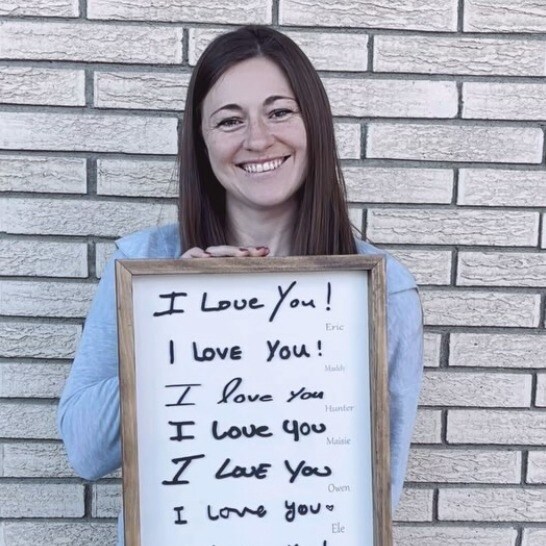 I Love You!
Eric
I Love You!
Maddy
I love you
Hunter
I love you
Maisie
I LOVE YOU
Owen
I love you
Ele